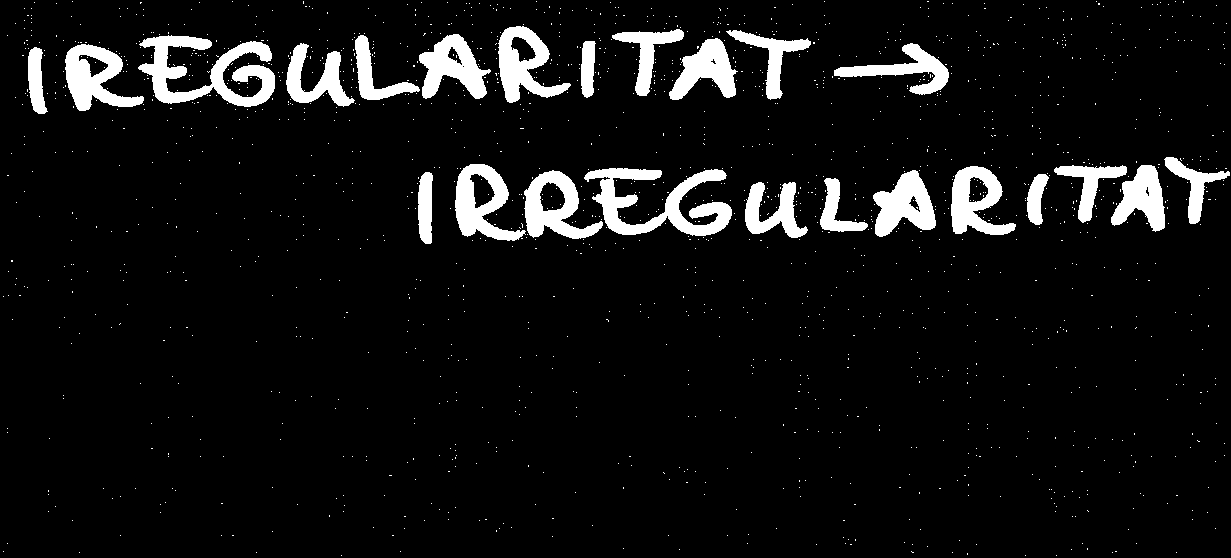 IREGULARITAT →
IRREGULARITAT